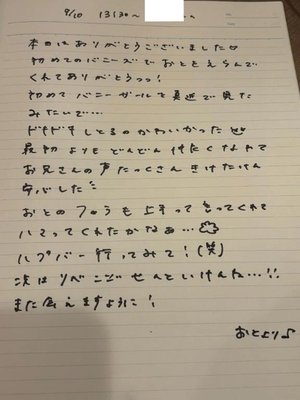 9/10 13:30~
本日はありがとうございました♡
初めてのバニーズでおとをえらんで
くれてありがとうっっ!
初めてバニーガールを真近で見た
みたいで...
ドキドキしとるのかわいかった
最初よりもどんどん仲たくなれて
お兄さんの声たっくさんきけたけん
安心した
おとのフェラも上手って言ってくれて
ハマってくれたかなぁ...
ハプバー行ってみて!(笑)
次はりべんじせんといけんね...!!
また会えますように!
おとより♪